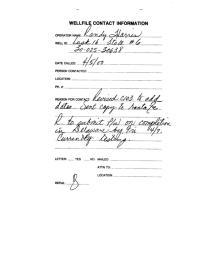 WELLFILE CONTACT INFORMATION
OPERATOR NAME: Randy Harris
WELL ID: State #6
30-025-30638
DATE CALLED: 4/5/00
PERSON CONTACTED:
LOCATION:
PH. #
REASON FOR CONTACT: Revised C103 to add
dates. Sent copy to Santa Fe.
R to submit P/W on completion
in Delaware by
Currently testing.
LETTER: YES NO MAILED
ATTN TO:
LOCATION: